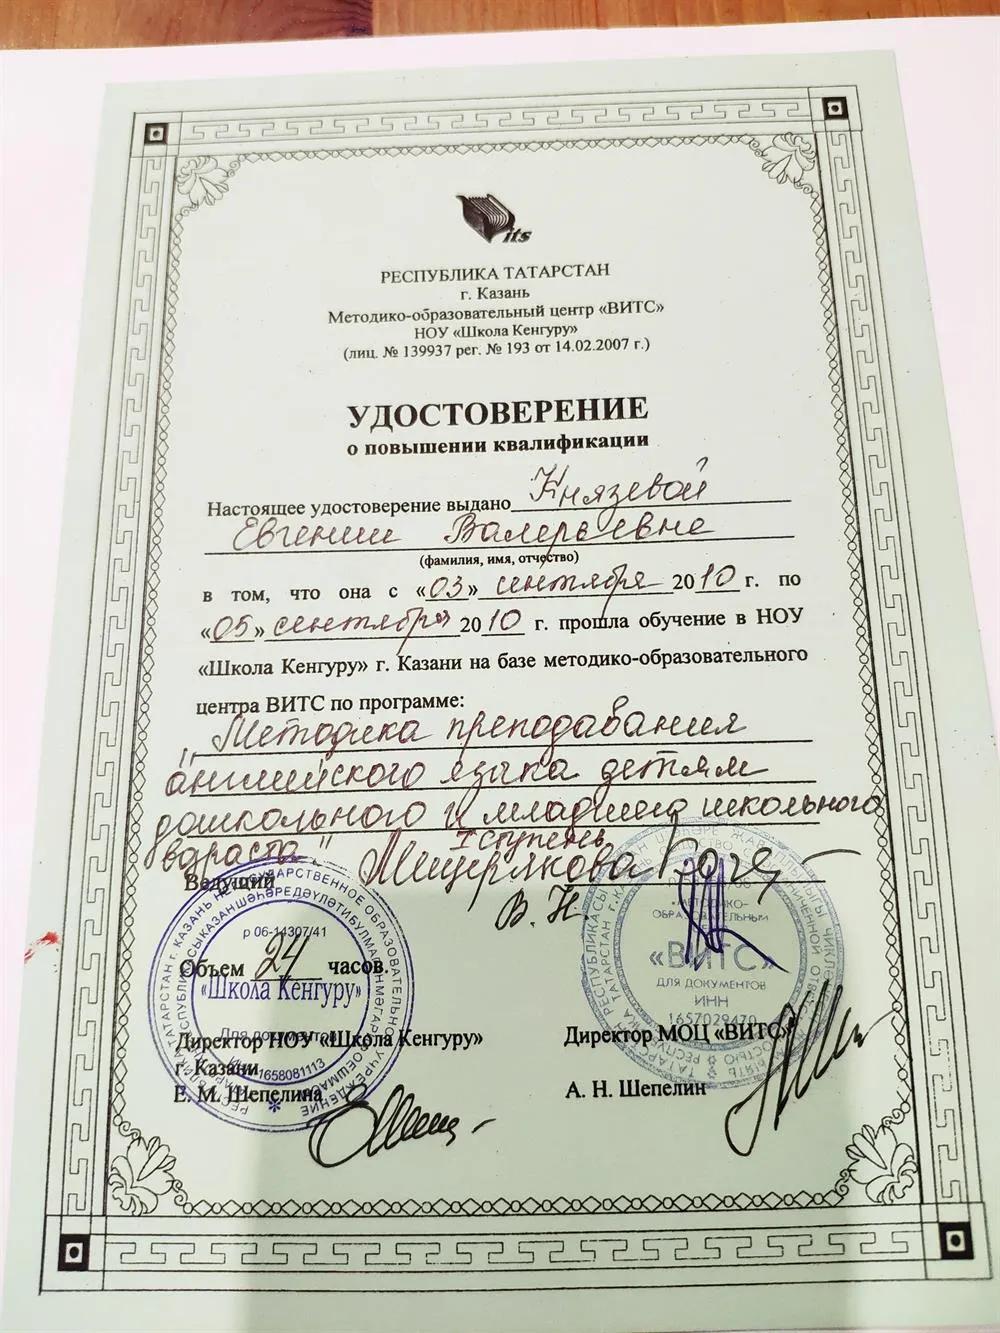 its
РЕСПУБЛИКА ТАТАРСТАН
г. Казань
Методико-образовательный центр «ВИТС»
НОУ «Школа Кенгуру»
(лиц. № 139937 рег. № 193 от 14.02.2007 г.)
УДОСТОВЕРЕНИЕ
о повышении квалификации
Настоящее удостоверение выдано Князевой
Евгении Валерьевне
(фамилия, имя, отчество)
в том, что она с «03» сентября 2010 г. по
«05» сентября 2010 г. прошла обучение в НОУ
«Школа Кенгуру» г. Казани на базе методико-образовательного
центра ВИТС по программе:
„Методика преподавания
английского языка детям
дошкольного и младшего школьного
возраста." I ступень
Ведущий Мещерякова
В. Н.
р 06-14307/41
Объем 24 часов.
«Школа Кенгуру»
Для документов
1658081113
МЕТОДИКО-
ОБРАЗОВАТЕЛЬНЫЙ
«ВИТС»
ДЛЯ ДОКУМЕНТОВ
ИНН
1657029470
Директор НОУ «Школа Кенгуру»
г. Казани
Е. М. Шепелина
Директор МОЦ «ВИТС»
А. Н. Шепелин